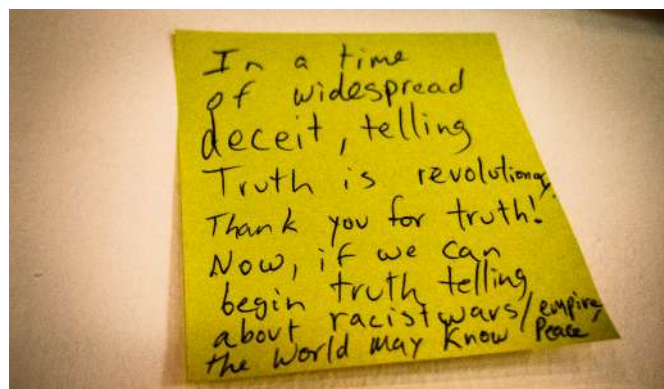 In a time
of widespread
deceit, telling
Truth is revolutionary
Thank you for truth!
Now, if we can
begin truth telling
about racist wars/empire,
the World may Know Peace